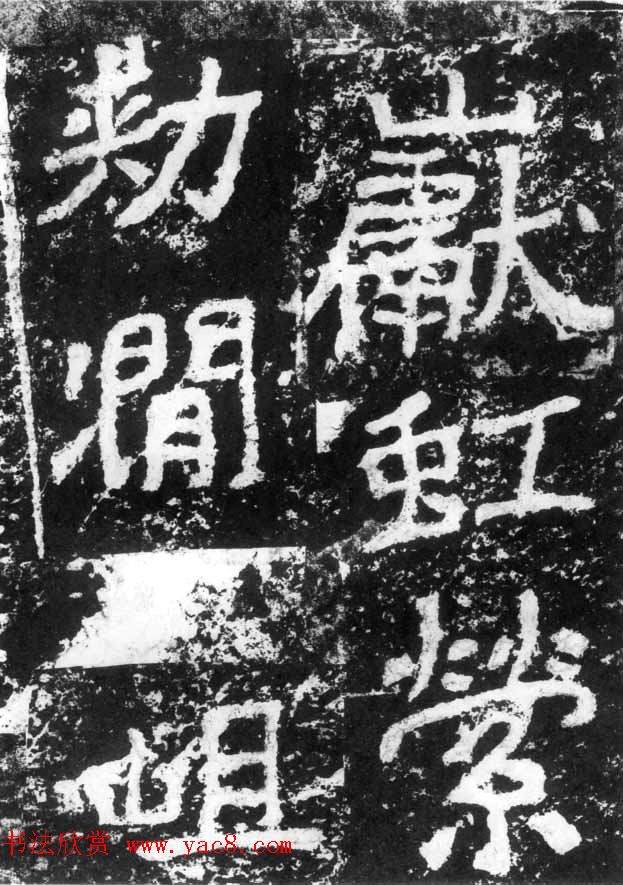 巘虹縈
勑㵎岨
书法欣赏 www.yac8.com